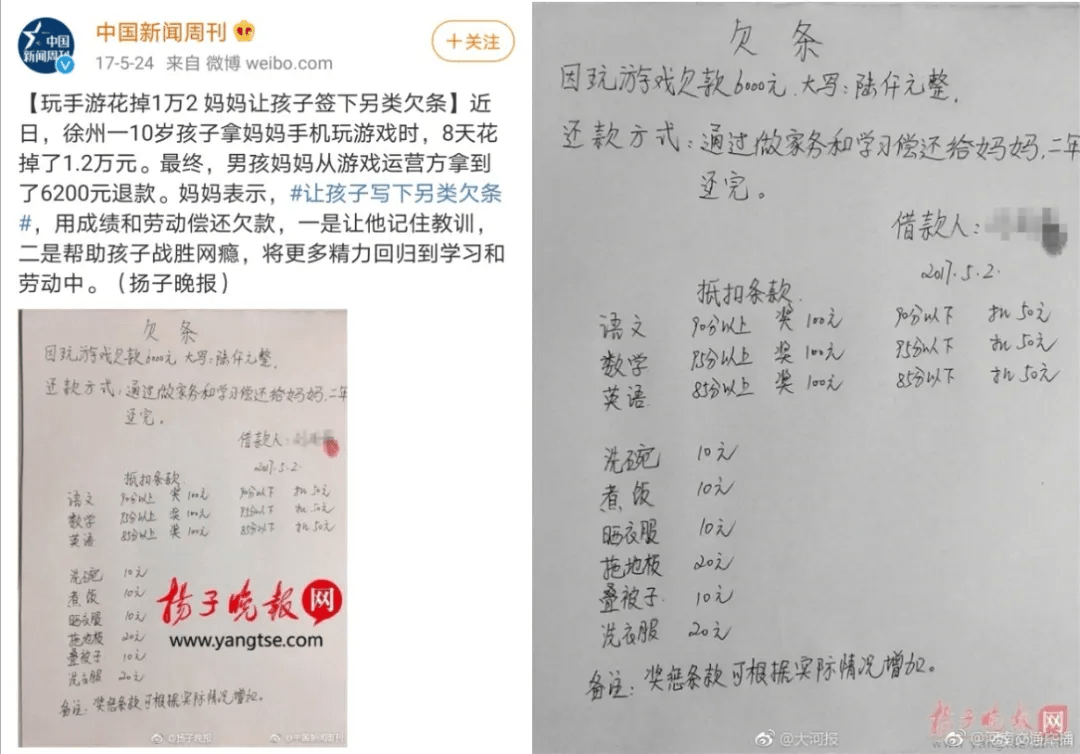 中国新闻周刊
中国
新闻周刊
17-5-24 来自 微博 weibo.com
+关注
【玩手游花掉1万2 妈妈让孩子签下另类欠条】近
日，徐州一10岁孩子拿妈妈手机玩游戏时，8天花
掉了1.2万元。最终，男孩妈妈从游戏运营方拿到
了6200元退款。妈妈表示，#让孩子写下另类欠条
#，用成绩和劳动偿还欠款，一是让他记住教训，
二是帮助孩子战胜网瘾，将更多精力回归到学习和
劳动中。（扬子晚报）
欠 条
因玩游戏欠款6000元 大写：陆仟元整，
还款方式：通过做家务和学习偿还给妈妈，二年
还完。
借款人：
2017.5.2.
抵扣条款
语文 90分以上 奖 100元 90分以下 扣 50元
数学 95分以上 奖 100元 95分以下 扣 50元
英语 85分以上 奖 100元 85分以下 扣 50元
洗碗 10元
煮饭 10元
晒衣服 10元
拖地板 20元
叠被子 10元
洗衣服 20元
备注：奖惩条款可根据实际情况增加。
扬子晚报网
www.yangtse.com
@扬子晚报
@中国新闻周刊
欠 条
因玩游戏欠款6000元，大写：陆仟元整，
还款方式：通过做家务和学习偿还给妈妈，二年
还完。
借款人：
2017.5.2.
抵扣条款
语文 90分以上 奖 100元 90分以下 扣 50元
数学 95分以上 奖 100元 95分以下 扣 50元
英语 85分以上 奖 100元 85分以下 扣 50元
洗碗 10元
煮饭 10元
晒衣服 10元
拖地板 20元
叠被子 10元
洗衣服 20元
备注：奖惩条款可根据实际情况增加。
扬子晚报网
@大河报